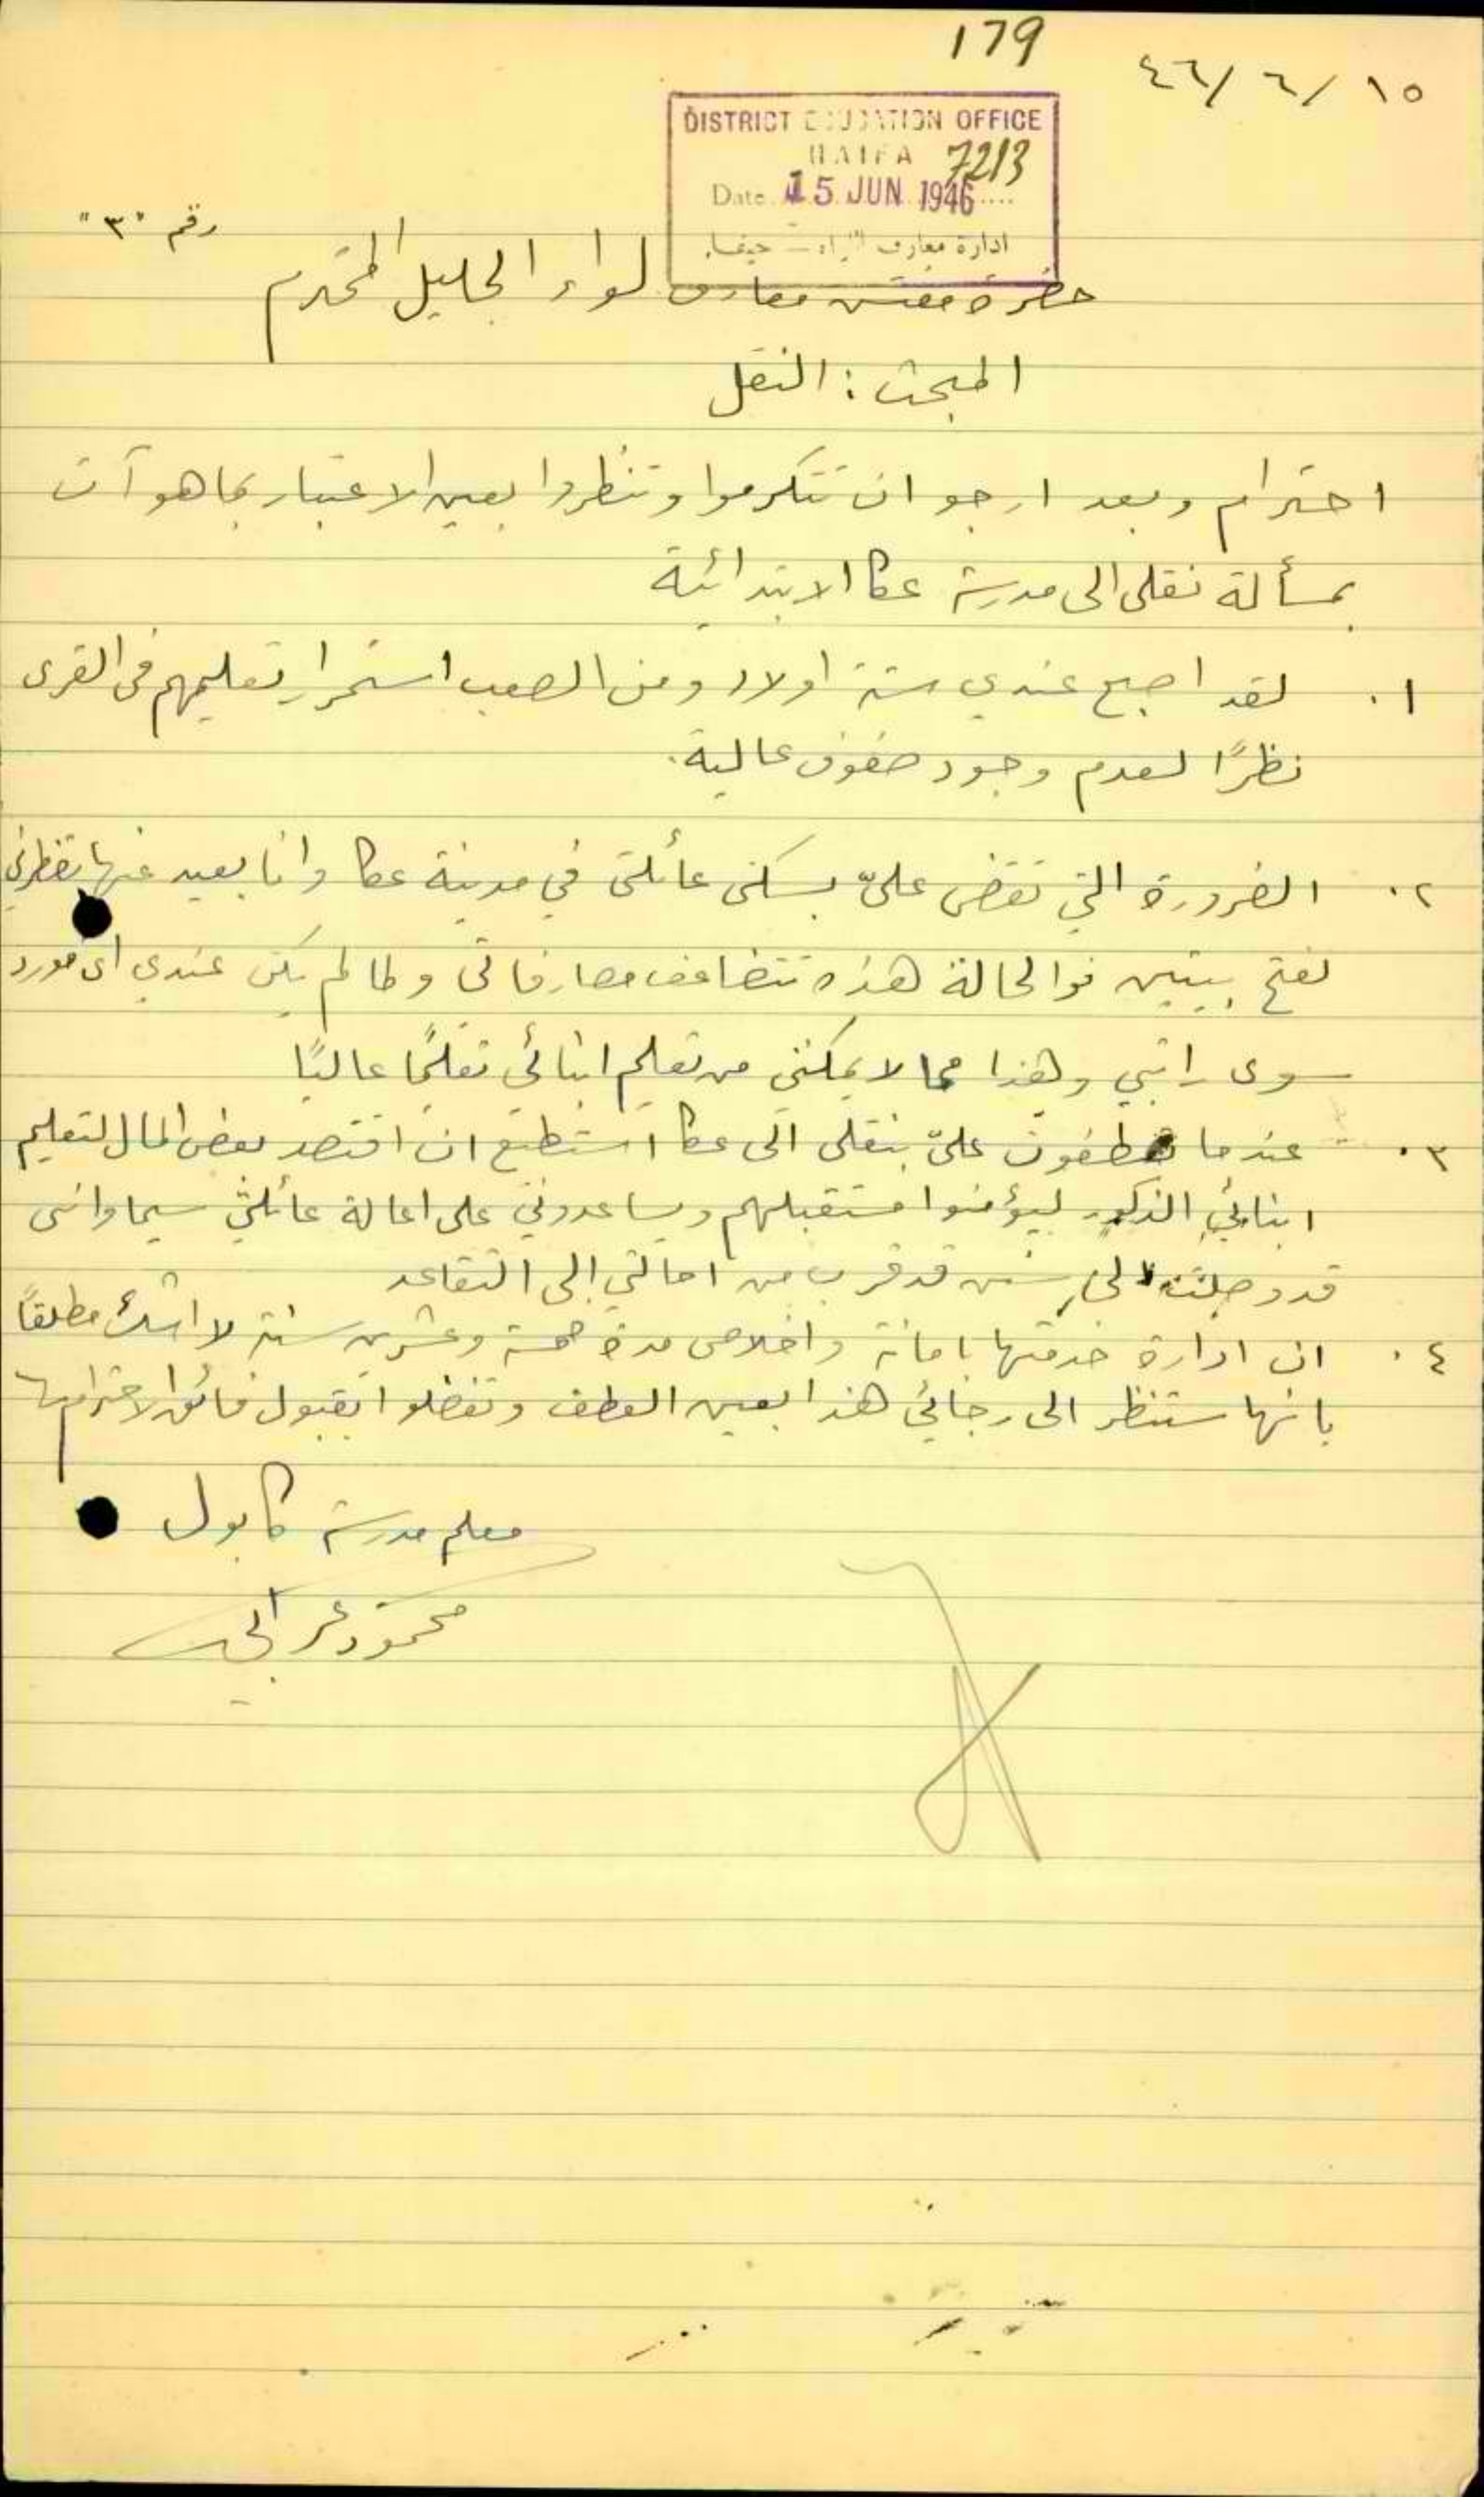 179
١٥/٦/٤٦
DISTRICT EDUCATION OFFICE
HAIFA 7213
Date 15 JUN 1946
ادارة معارف اللواء – حيفا.
رقم "٣"
حضرة مفتش معارف لواء الجليل المحترم
المبحث: النقل
احترام وبعد ارجو ان تتكرموا وتنظروا بعين الاعتبار بما هو آت
بمسألة نقلي الى مدرسة عكا الابتدائية
١. لقد اصبح عندي ستة اولاد ومن الصعب استمرار تعليمهم في القرى
نظرًا لعدم وجود صفوف عالية.
٢. الضرورة التي تقضي عليّ بسكنى عائلتي في مدينة عكا وانا بعيد عنها تضطرني
لفتح بيتين فوالحالة هذه تتضاعف مصارفاتي وطالم يكن عندي اي مورد
سوى راتبي وهذا مما لا يمكنني من تعليم ابنائي تعليمًا عاليًا
٣. عندما تعطفون عليّ بنقلي الى عكا استطيع ان اقتصد بعض المال لتعليم
ابنائي الذكور ليؤمنوا مستقبلهم ويساعدوني على اعالة عائلتي سيما وانني
قد وصلت الى سن قد قرب من احالتي إلى التقاعد
٤. ان ادارة خدمتها بامانة واخلاص مدة خمسة وعشرين سنة لا اشك مطلقًا
بانها ستنظر الى رجائي هذا بعين العطف وتفضلوا بقبول فائق الاحترام
معلم مدرسة كابول
محمود عرابي